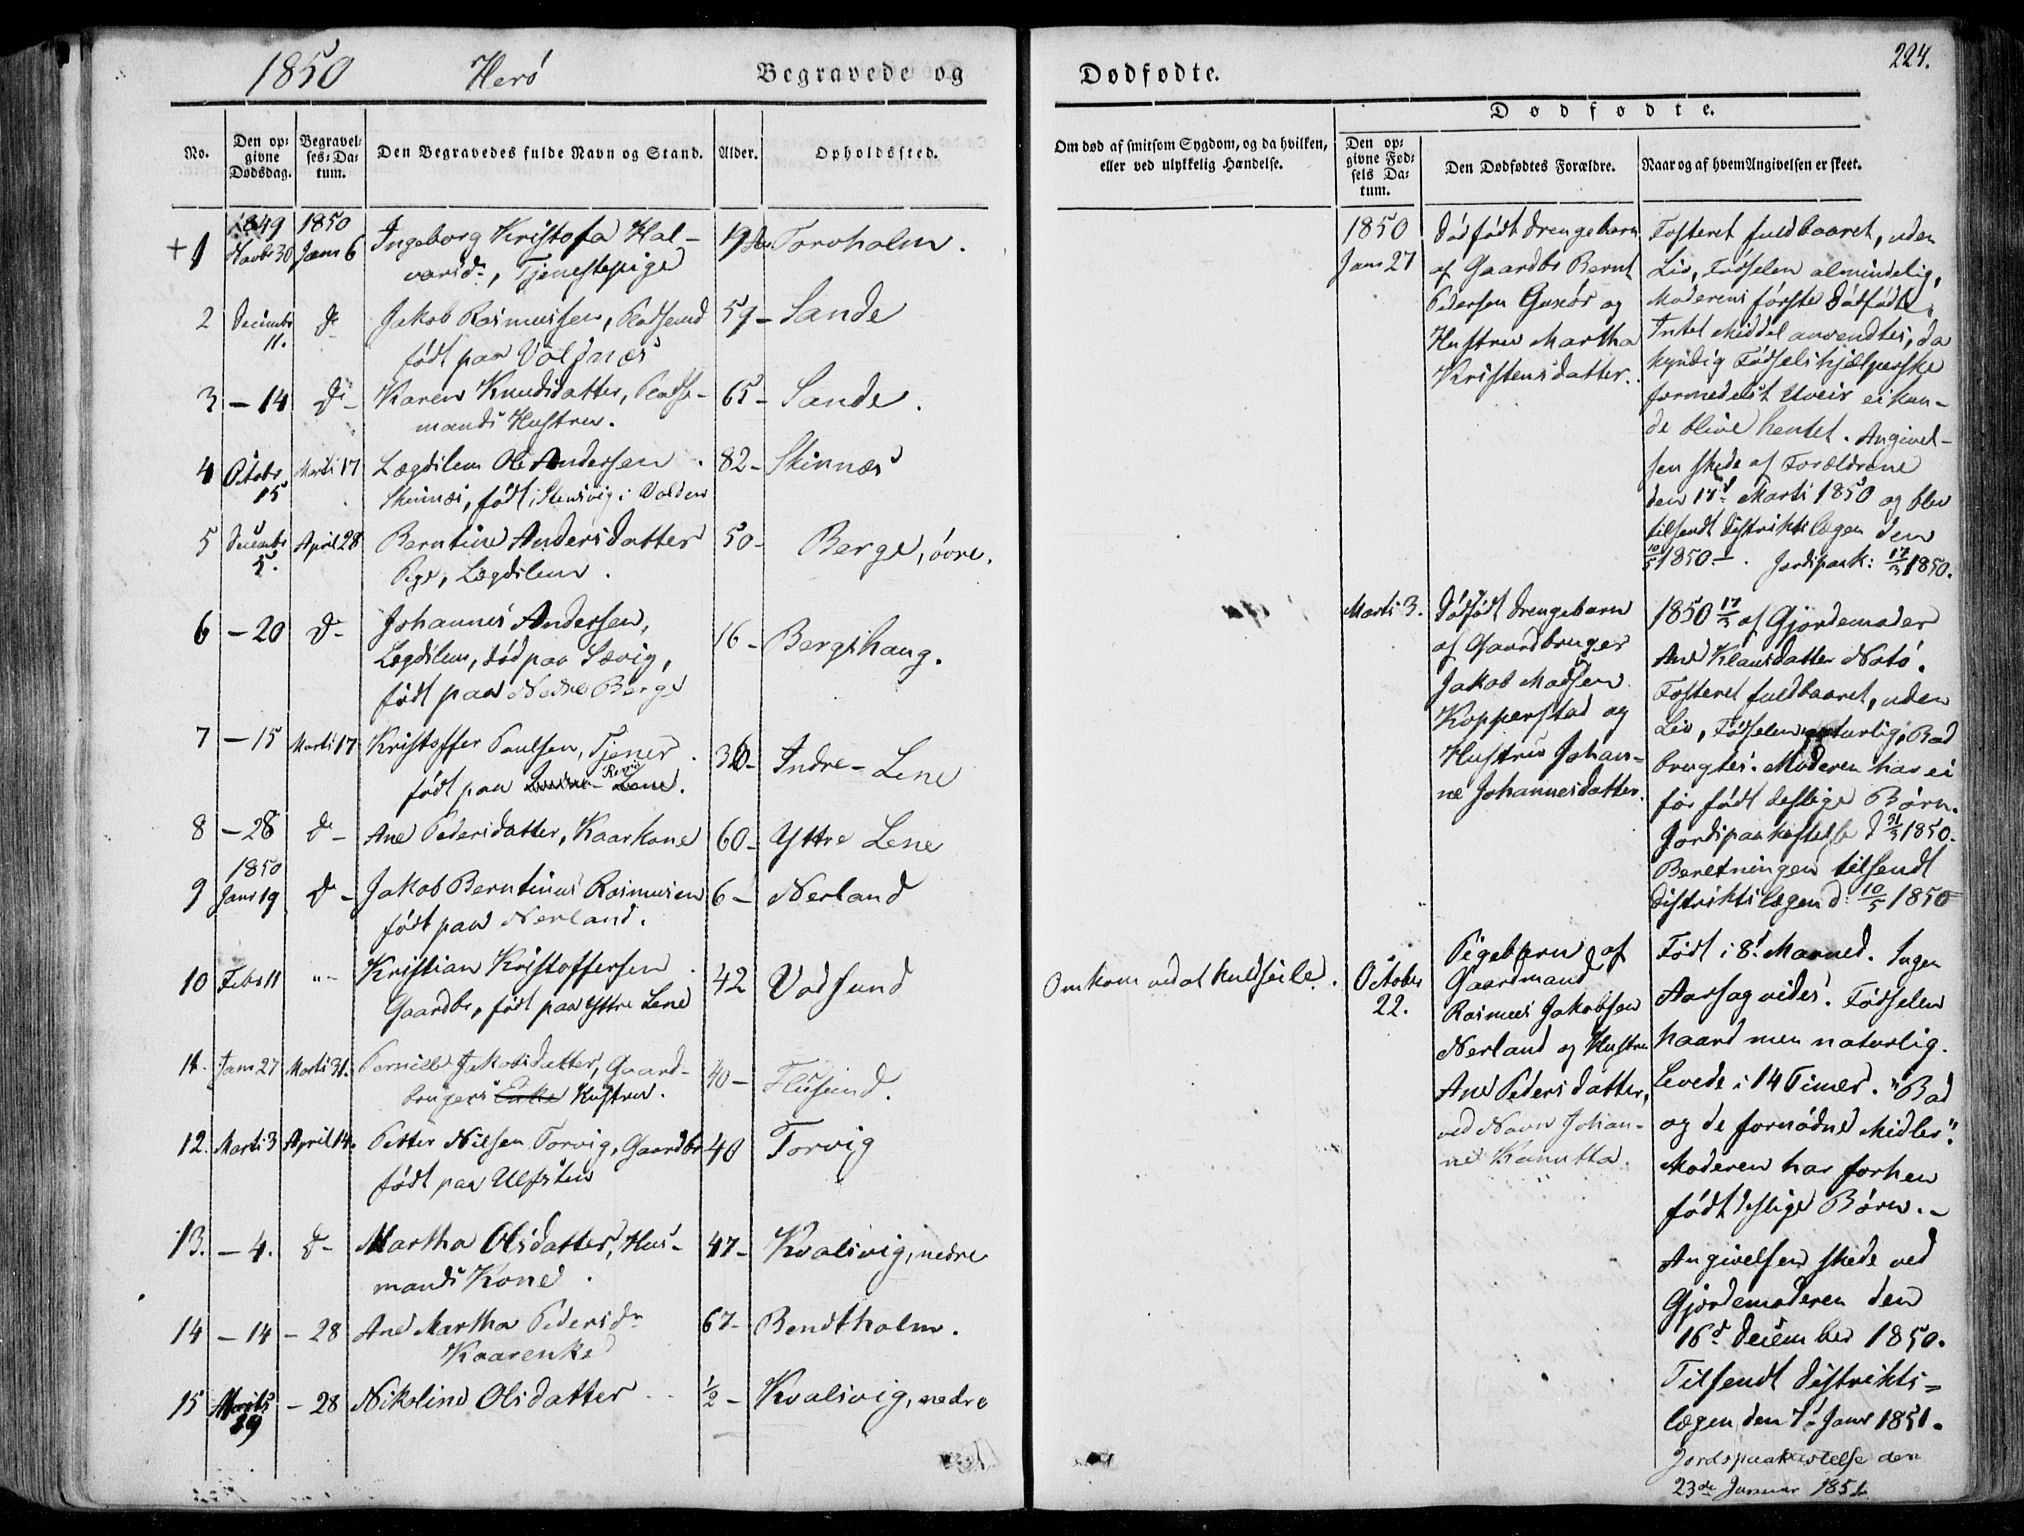 1850 Herö Begravede og
No.
Den op-
givne
Dødsdag.
Begravel-
ses-Da-
tum.
Den Begravedes fulde Navn og Stand.
Alder.
Opholdssted.
1849 1850
+ 1 Novbr 30 Janr 6 Ingeborg Kristofa Hal- 19 Torvholm.
varsdr, Tjenestepige
2 Decembr 11. do Jakob Rasmussen, Pladsmd 59 - Sande
født paa Voldnæs
3 - 14 do - Karen Knudsdatter, Pladse- 65 - Sande.
mands Hustru.
4 Octobr 15 Marti 17 Lægdslem Ole Andersen 82 - Skinnæs
Skinnæs, født i Stensvig i Volden
5 Decembr 5. April 28 Berntine Andersdatter 50 - Berge, övre.
Pige, Lægdslem.
6 - 20 do - Johannes Andersen, 16 - Bergshaug.
Legdslem, død paa Sævig,
født paa Nedre Berge
7 - 15 Marti 17 Kristoffer Paulsen, Tjener 36 - Indre - Lene
født paa Lene.
8 - 28 do - Ane Pedersdatter, Kaarkone 60 - Yttre Lene
1850
9 Janr 19 do - Jakob Berntinus Rasmusen 6 - Nerland
født paa Nerland.
10 Febr 11 " - Kristian Kristoffersen 42 Vadsund
Gaardbr, født paa Yttre Lene
11. Janr 27 Marti 31. Pernille Jakobsdatter, Gaard- 40 - Flusund.
brugers Enke Hustru.
12. Marti 3 April 14. Petter Nilsen Torvig, Gaardbr 40 Torvig
født paa Ulfsten
13. - 4. do - Martha Olsdatter, Hus- 47 - Kvalsvig, nedre
mands Kone.
14 - 14 - 28 Ane Martha Pedersdr 67 - Bendtholm.
Kaarenke
15 Marti 19 - 28 Nikoline Olsdatter ½ - Kvalsvig, nedre
Dødfødte. 224.
Om død af smitsom Sygdom, og da hvilken,
eller ved ulykkelig Hændelse.
Dødfødte.
Den op-
givne Fød-
sels Da-
tum.
Den Dødfødtes Forældre.
Naar og af hvem Angivelsen er skeet.
Omkom ved at kuldseile.
1850
Janr 27
Dødfødt Drengebarn
af Gaardbr Bernt
Pedersen Gurskö og
Hustru Martha
Kristensdatter.
Fosteret fuldbaaret, uden
Liv, Fødselen almindelig,
Moderens første dødfødte,
Intet Middel anvendtes, da
kyndig Fødselshjælperske
formedelst Uveir ei kun-
de blive hentet. Angivel-
sen skede af Forældrene
den 17d Marti 1850 og blev
tilsendt Distriktslægen den
10/5 1850. - Jordspaak: 17/3 1850.
Marti 3.
Dødfødt Drengebarn
af Gaardbruger
Jakob Madsen
Kopperstad og
Hustru Johan-
ne Johannesdatter.
1850 17/3 af Gjordemoder
Ane Klausdatter Notö.
Fosteret fuldbaaret, uden
Liv, Fødselen naturlig, Bad
brugtes. Moderen har ei
før født deslige Børn.
Jordspaakastelse d 31/3 1850.
Beretningen tilsendt
Distriktslægen d. 10/5 1850
October
22.
Pigebarn af
Gaardmand
Rasmus Jakobsen
Nerland og Hustru
Ane Pedersdatter,
ved Navn Johan-
ne Kanutta.
Født i 8d Maaned. Ingen
Aarsag vides. Fødselen
haard men naturlig.
Levede i 14 Timer. "Bad
og de fornødne Midler".
Moderen har forhen
født deslige Børn. -
Angivelsen skede ved
Gjordemoderen den
16d December 1850.
Tilsendt Distrikts-
lægen den 7d Janr 1851.
Jordspaakastelse den
23de Januar 1851.